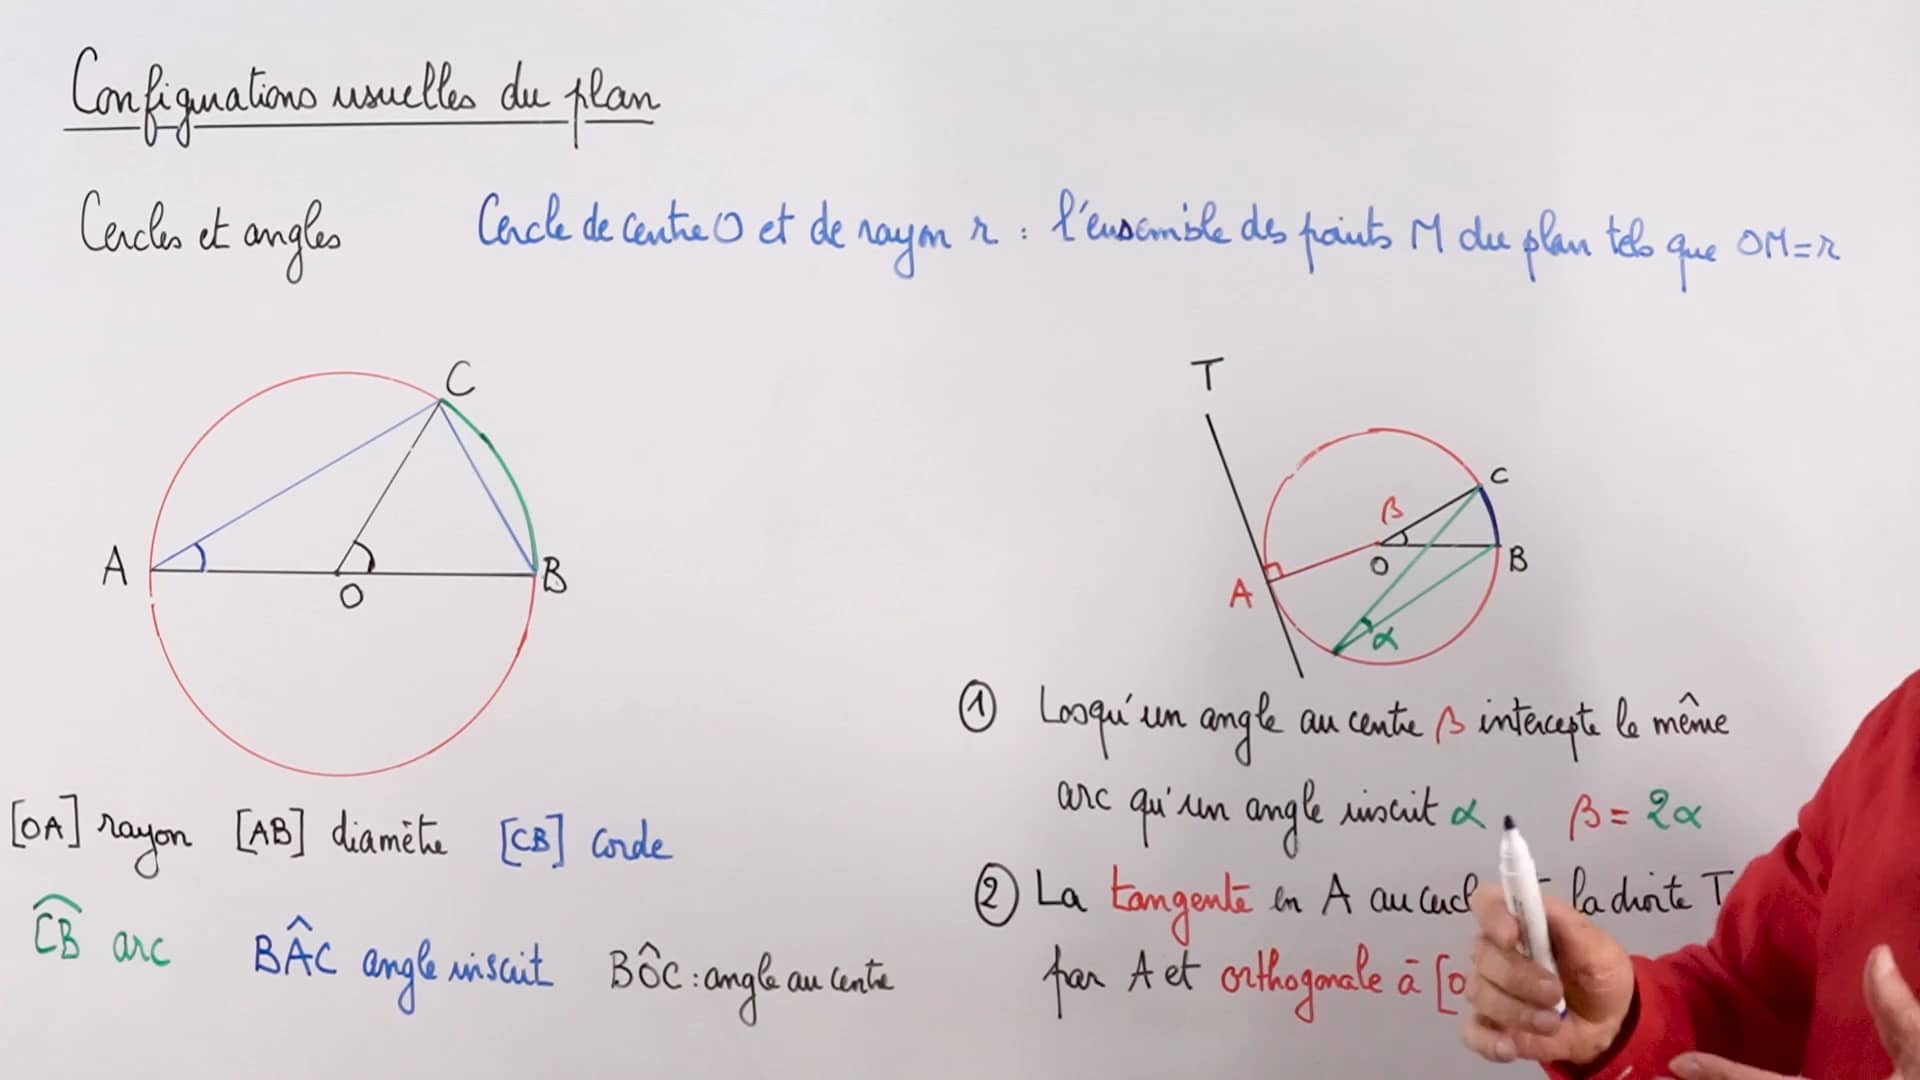 Configurations usuelles du plan
Cercles et angles
Cercle de centre O et de rayon r : l'ensemble des points M du plan tels que OM=r
C
A
O
B
T
C
β
O
B
A
α
[OA] rayon [AB] diamètre [CB] corde
CB arc BÂC angle inscrit BÔC : angle au centre
① Losqu'un angle au centre β intercepte le même
arc qu'un angle inscrit α β = 2α
② La tangente en A au la droite T
par A et orthogonale à [O